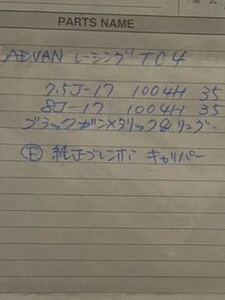 PARTS NAME
ADVAN レーシング TC4
7.5J-17 1004H 35
8J-17 1004H 35
ブラックガンメタリック&リング.
Ⓕ 純正ブレンボ キャリパー